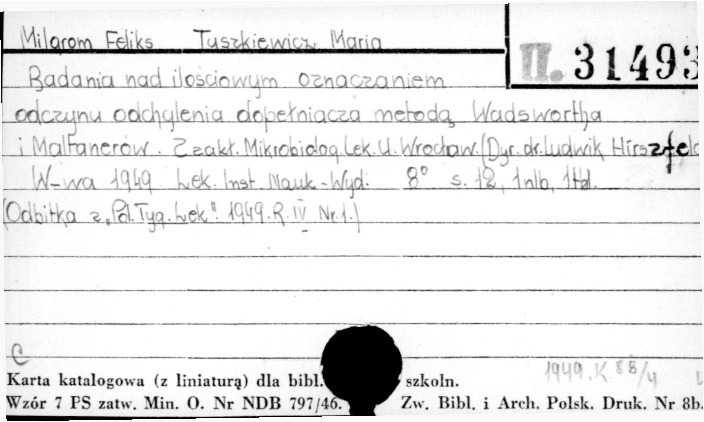 Milgrom Feliks Tuszkiewicz Maria
II. 31493
Badania nad ilościowym oznaczaniem
odczynu odchylenia dopełniacza metodą Wadswortha
i Maltanerów. Z zakł. Mikrobiolog. Lek. U. Wrocław. (Dyr. dr. Ludwik Hirszfeld
W-wa 1949. Lek. Inst. Nauk.-Wyd. 8° s. 12, 1 nlb, 1 tbl.
(Odbitka z „Pol. Tyg. Lek". 1949. R. IV Nr. 1.)
C
1949. K. 88/4
Karta katalogowa (z liniaturą) dla bibl. szkoln.
Wzór 7 PS zatw. Min. O. Nr NDB 797/46. Zw. Bibl. i Arch. Polsk. Druk. Nr 8b.